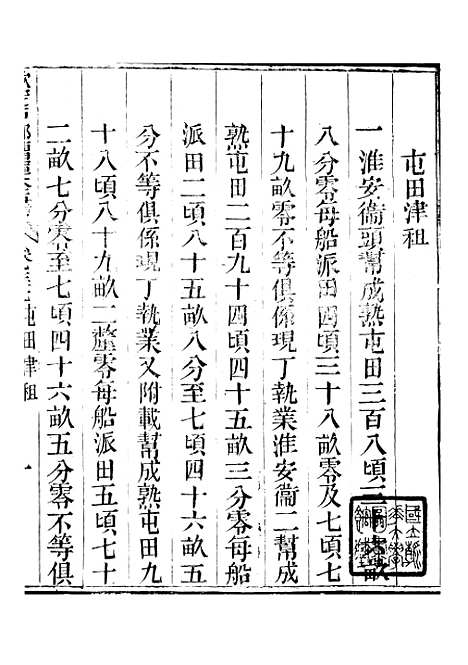 屯田津租
一淮安衞頭幫成熟屯田三百八頃三十畝
八分零每船派田四頃三十八畝零及七頃七
十九畝零不等俱係現丁執業淮安衞二幫成
熟屯田二百九十四頃四十五畝三分零每船
派田二頃八十五畝八分至七頃四十六畝五
分不等俱係現丁執業又附載幫成熟屯田九
十八頃八十九畝二釐零每船派田五頃七十
二畝七分零至七頃四十六畝五分零不等俱
欽定戶部漕運全書 卷 屯田津租 一